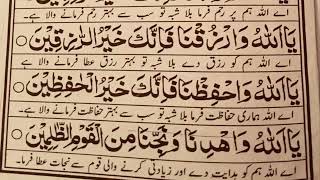 اے اللہ ہم پر رحم فرما بلا شبہ تو سب سے بہتر رحم فرمانے والا ہے۔
يَا اَللّٰهُ وَارْزُقْنَا فَاِنَّكَ خَيْرُ الرّٰزِقِيْنَ ○
اے اللہ ہم کو رزق دے بلا شبہ تو سب سے بہتر رزق عطا فرمانے والا ہے۔
يَا اَللّٰهُ وَاحْفِظْنَا فَاِنَّكَ خَيْرُ الْحٰفِظِيْنَ ○
اے اللہ ہماری حفاظت فرما بلا شبہ تو سب سے بہتر حفاظت فرمانے والا ہے۔
يَا اَللّٰهُ وَاهْدِنَا وَنَجِّنَا مِنَ الْقَوْمِ الظّٰلِمِيْنَ ○
اے اللہ ہم کو ہدایت دے اور زیادتی کرنے والی قوم سے نجات عطا فرما۔